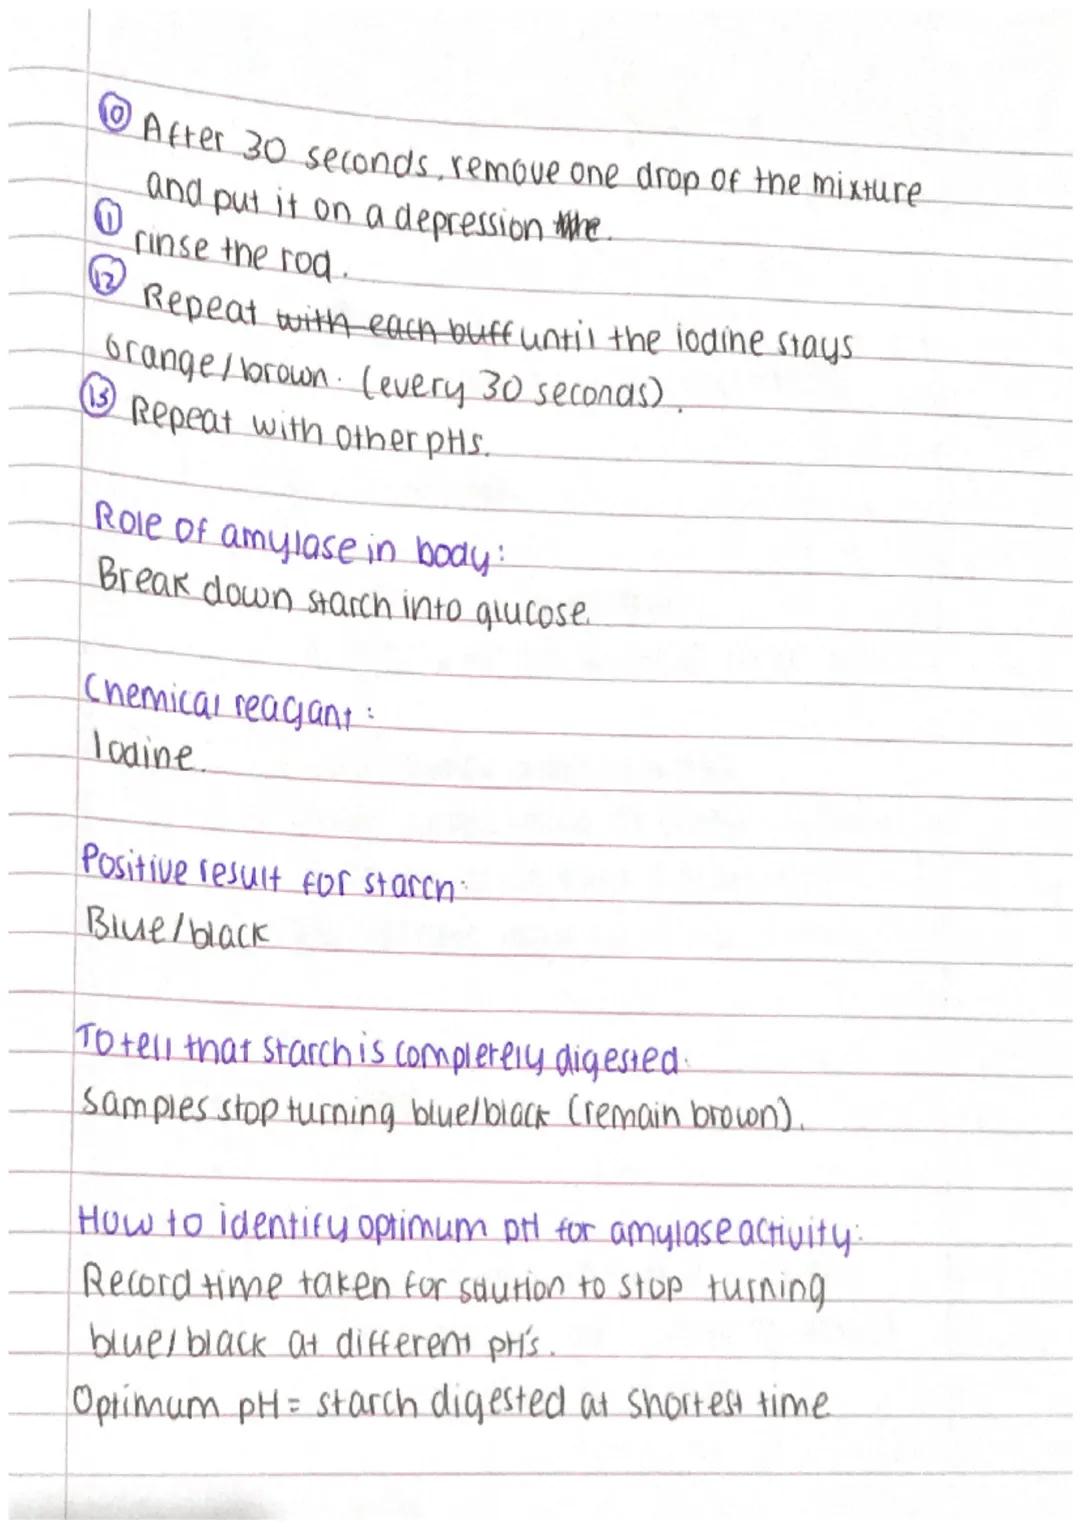 ⑩ After 30 seconds, remove one drop of the mixture
and put it on a depression the.
⑪ rinse the rod.
⑫ Repeat with each buff until the iodine stays
orange/brown. (every 30 seconds).
⑬ Repeat with other pHs.
Role of amylase in body:
Break down starch into glucose.
Chemical reagant:
Iodine.
Positive result for starch:
Blue/black
To tell that starch is completely digested:
Samples stop turning blue/black (remain brown).
How to identify optimum pH for amylase activity:
Record time taken for solution to stop turning
blue/black at different pH's.
Optimum pH = starch digested at shortest time